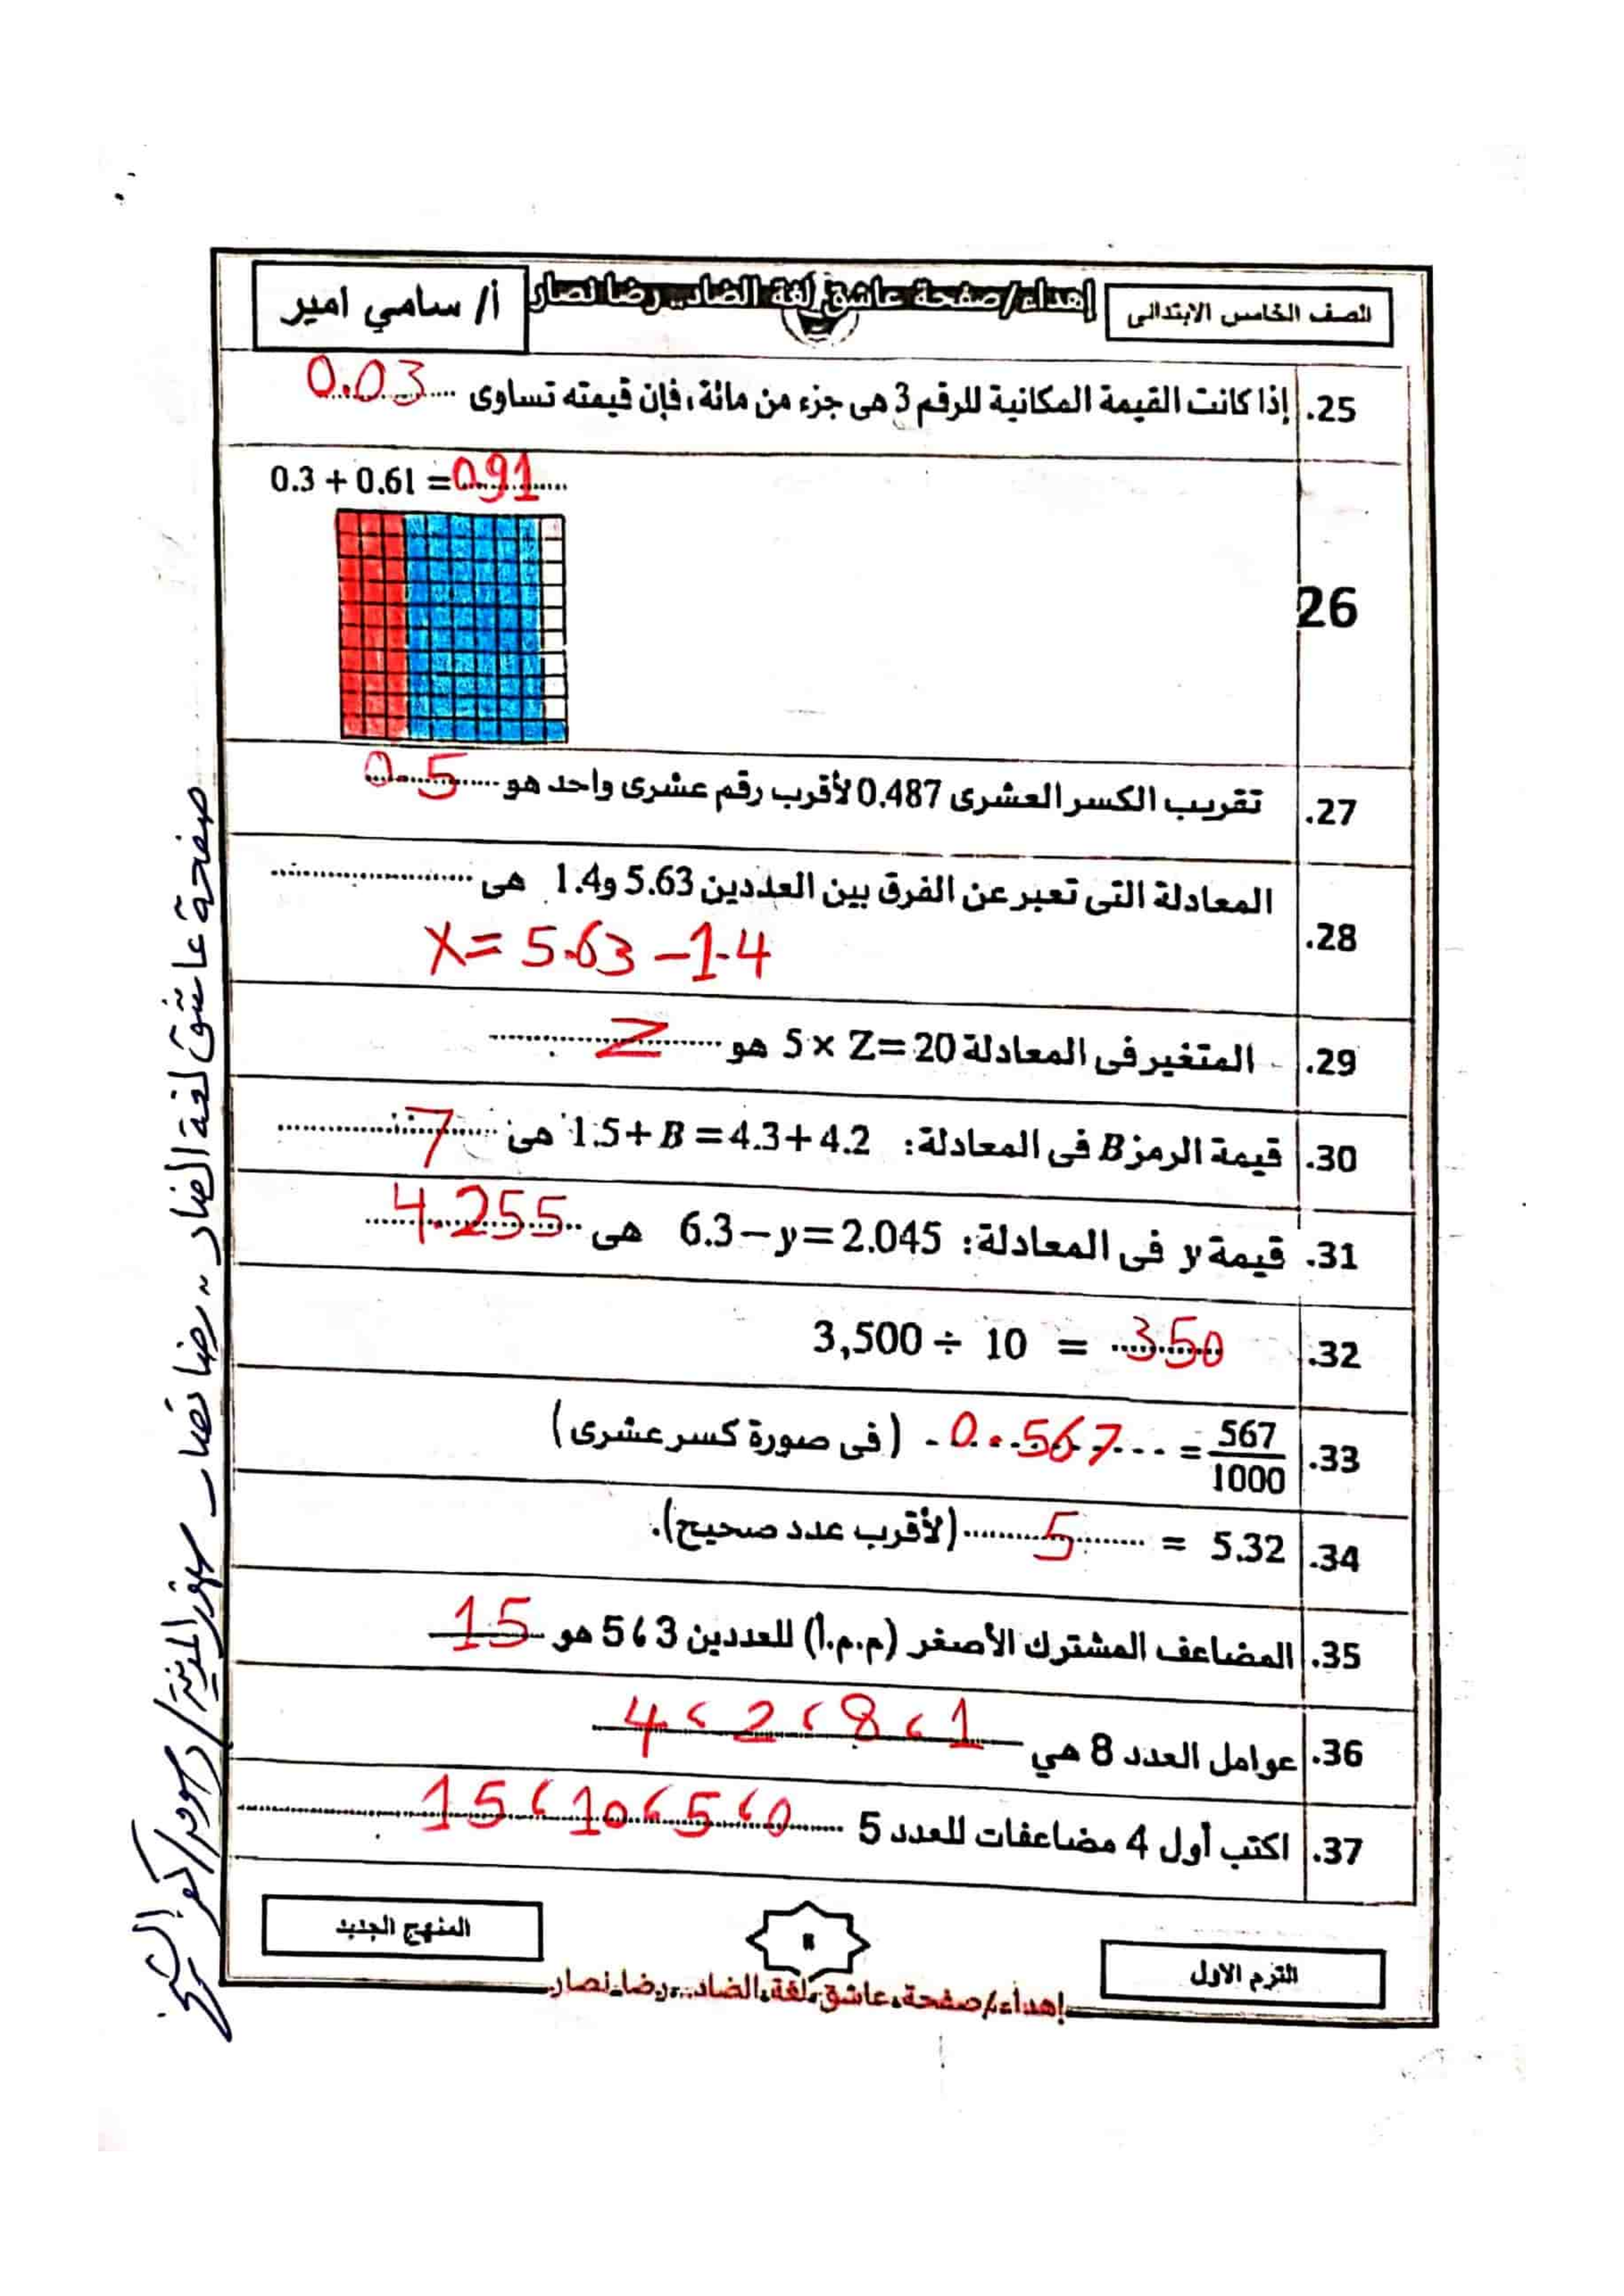 الصف الخامس الابتدائى
إهداء/صفحة عاشق لغة الضاد.. رضا نصار
أ/ سامي امير
25. إذا كانت القيمة المكانية للرقم 3 هى جزء من مائة، فإن قيمته تساوى 0.03
0.3 + 0.61 = 0.91
26
27. تقريب الكسر العشرى 0.487 لأقرب رقم عشرى واحد هو 0.5
28. المعادلة التى تعبر عن الفرق بين العددين 5.63 و1.4 هى
X = 5.63 - 1.4
29. المتغير فى المعادلة 5 × Z = 20 هو Z
30. قيمة الرمز B فى المعادلة: 1.5 + B = 4.3 + 4.2 هى 7
31. قيمة y فى المعادلة: 6.3 – y = 2.045 هى 4.255
32. 3,500 ÷ 10 = 350
33. 567/1000 = 0.567 (فى صورة كسر عشرى)
34. 5.32 = 5 (لأقرب عدد صحيح).
35. المضاعف المشترك الأصغر (م.م.أ) للعددين 3 ، 5 هو 15
36. عوامل العدد 8 هي 1 ، 8 ، 2 ، 4
37. اكتب أول 4 مضاعفات للعدد 5 0 ، 5 ، 10 ، 15
الترم الاول
8
المنهج الجديد
إهداء/صفحة عاشق لغة الضاد.. رضا نصار
صفحة عاشق لغة الضاد.. رضا نصار